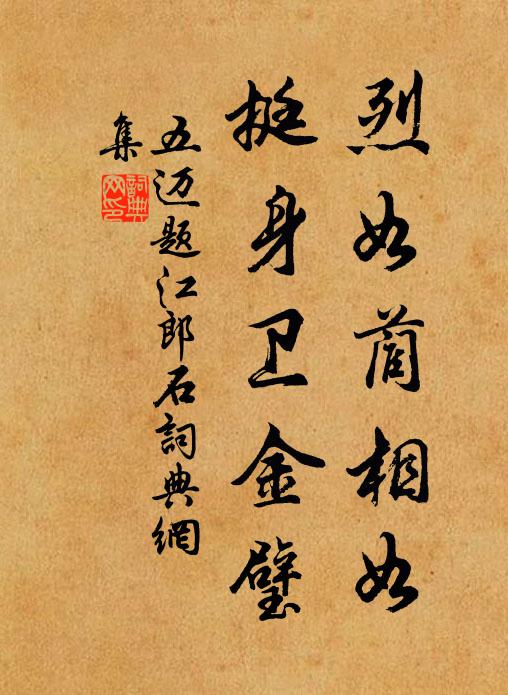 烈如蔺相如
挺身卫金璧
五迈题江郎石词典網
集
词典
网印